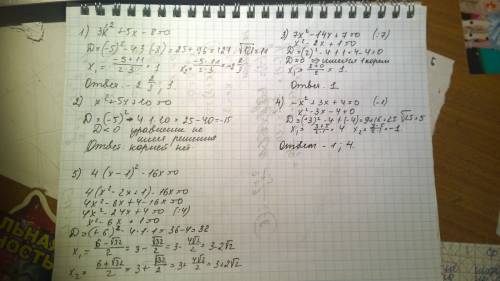 1) 3x² + 5x - 8 = 0
D = (-5)² - 4·3·(-8) = 25 + 96 = 121; √121 = 11
x₁ = (-5 + 11)/(2·3) = 1 x₂ = (-5 - 11)/(2·3) = -2 2/3
Ответ: -2 2/3; 1
2) x² + 5x + 20 = 0
D = (-5)² - 4·1·20 = 25 - 40 = -15
D < 0 уравнение не
имеет решения
Ответ: корней нет
3) 7x² - 14x + 7 = 0 (:7)
x² - 2x + 1 = 0
D = (2)² - 4·1·1 = 4 - 4 = 0
D = 0 => имеется 1 корень
x₁ = (2 + 0)/2 = 1
Ответ: 1
4) -x² + 3x + 4 = 0 (-1)
x² - 3x - 4 = 0
D = (-3)² - 4·1·(-4) = 9 + 16 = 25 √25 = 5
x₁ = (3 + 5)/(2·1) = 4 x₂ = (3 - 5)/(2·1) = -1
Ответ: -1; 4.
5) 4(x - 1)² - 16x = 0
4(x² - 2x + 1) - 16x = 0
4x² - 8x + 4 - 16x = 0
4x² - 24x + 4 = 0 (:4)
x² - 6x + 1 = 0
D = (-6)² - 4·1·1 = 36 - 4 = 32
x₁ = (6 - √32)/2 = 3 - √32/2 = 3 - 4√2/2 = 3 - 2√2
x₂ = (6 + √32)/2 = 3 + √32/2 = 3 + 4√2/2 = 3 + 2√2